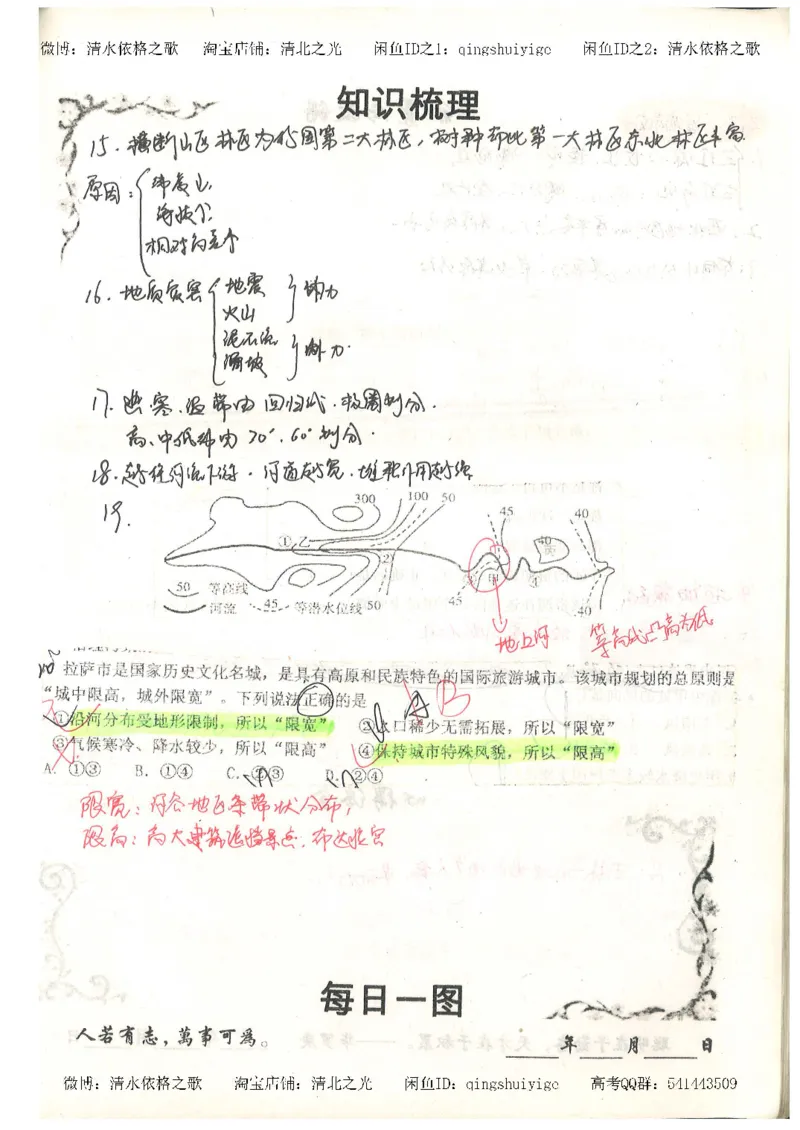 微博：清水依格之歌 淘宝店铺：清北之光 闲鱼ID之1：qingshuiyige 闲鱼ID之2：清水依格之歌
知识梳理
15. 横断山区林区为我国第二大林区，树种却比第一大林区东北林区丰富
原因：
纬度
海拔
相对高差
16. 地质灾害
地震
火山
内力
泥石流
滑坡
外力.
17. 热.寒.温带由回归线.极圈划分.
高、中低纬由30°.60°划分.
18. 越往河流下游.河道越宽.堆积作用越强
19.
300 100 50
45 40
① 乙
②
40
丙
甲
50 等高线
河流 45 等潜水位线
50
45
40
地上河 等高线凸高为低
20 拉萨市是国家历史文化名城，是具有高原和民族特色的国际旅游城市。该城市规划的总原则是
“城中限高，城外限宽”。下列说法正确的是
B
①沿河分布受地形限制，所以“限宽” ②人口稀少无需拓展，所以“限宽”
③气候寒冷、降水较少，所以“限高” ④保持城市特殊风貌，所以“限高”
A. ①③ B. ①④ C. ②③ D. ②④
限宽：河谷地区条带状分布，
限高：高大建筑遮挡景点.布达拉宫
每日一图
人若有志，萬事可為。
年 月 日
微博：清水依格之歌 淘宝店铺：清北之光 闲鱼ID：qingshuiyige 高考QQ群：541443509